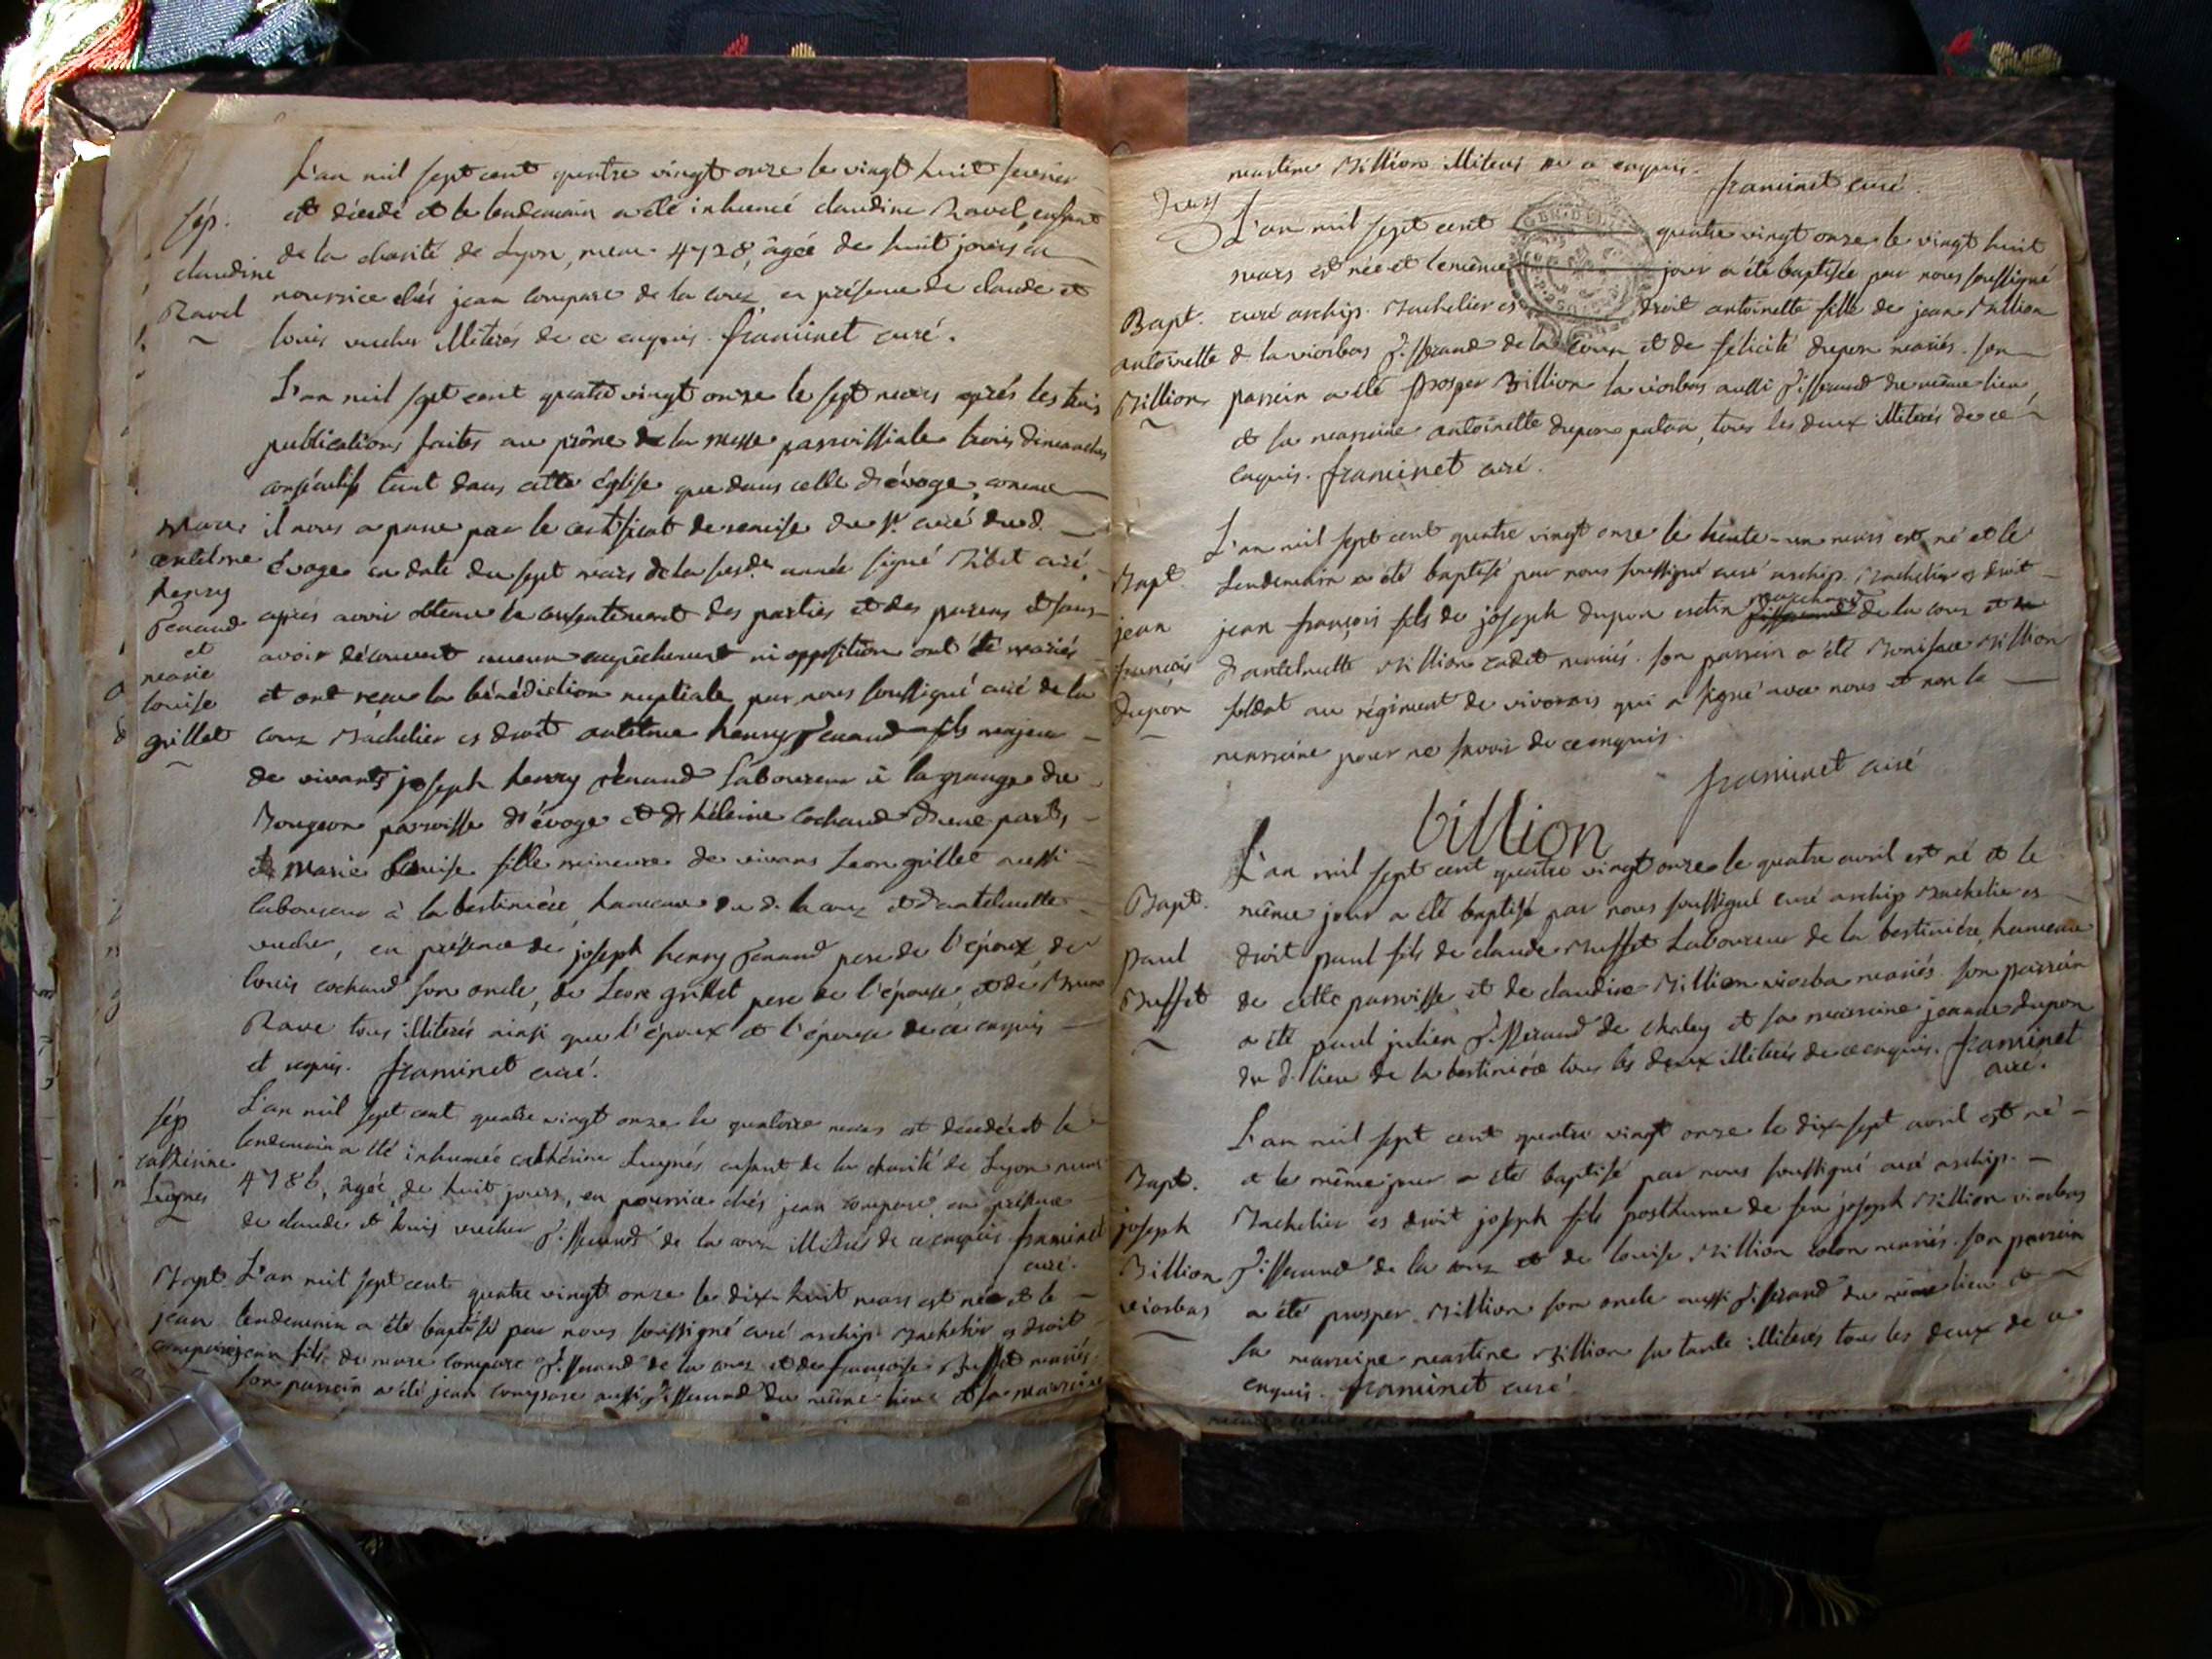 L'an mil sept cent quatre vingt onze le vingt huit fevrier
sép. est décédé et le lendemain a été inhumé claudine Ravel enfant
claudine de la charité de Lyon, num. 4728, âgée de huit jours en
Ravel nourrice chés jean compare de la couz en présence de claude et
louis vucher illiterés de ce enquis. framinet curé.
L'an mil sept cent quatre vingt onze le sept mars après les trois
publications faites au prône de la messe parroissiale trois dimanches
consécutifs tant dans cette église que dans celle d'évoge, comme
il nous a paru par le certificat de remise du sr. curé dud.
antelme évoge en date du sept mars de la susd. année signé Ribet curé,
henry après avoir obtenu le consentement des parties et des parens et sans
avoir découvert aucun empêchement ni opposition ont été mariés
et
marie
louise et ont reçu la bénédiction nuptiale par nous soussigné curé de la
grillet couz Bachelier es droit antelme henry fils majeur
de vivants joseph henry laboureur à la grange du
Bougeon parroisse d'évoge et d'héleine cochaud d'une part,
et marie Louise fille mineure de vivans Leon grillet aussi
laboureur à la bertinière hameau du d. la couz et d'antelmette
vucher, en présence de joseph henry pere de l'époux, de
louis cochaud son oncle, de Leon grillet pere de l'épouse, et de Bruno
Rave tous illiterés ainsi que l'époux et l'épouse de ce enquis
et requis. framinet curé.
sép L'an mil sept cent quatre vingt onze le quatorze mars est décédée et le
catherine lendemain a été inhumée cathérine enfant de la charité de Lyon num.
4786, âgée de huit jours, en nourrice chés jean compare, en présence
de claude et louis vucher tisserands de la couz illiterés de ce enquis framinet
curé.
Bapt. L'an mil sept cent quatre vingt onze le dix huit mars est né et le
jean lendemain a été baptisé par nous soussigné curé archip. Bachelier es droit
compare jean fils de marc compare tisserand de la couz et de françoise Buffet mariés.
son parrein a été jean compare aussi tisserand du même lieu et sa marreine
martine Billion illiterés de ce enquis.
framinet curé.
L'an mil sept cent quatre vingt onze le vingt huit
mars est née et le même jour a été baptisée par nous soussigné
Bapt. curé archip. Bachelier es droit antoinette fille de jean Billion
antoinette de la viorbas tisserand de la couz et de félicité dupon mariés. son
Billion parrein a été prosper Billion la viorbas aussi tisserand du même lieu,
et sa marreine antoinette dupon patan, tous les deux illiterés de ce
enquis. framinet curé.
L'an mil sept cent quatre vingt onze le trente-un mars est né et le
Bapt. Lendemain a été baptisé par nous soussigné curé archip. Bachelier es droit
jean jean françois fils de joseph dupon marchand de la couz et
françois d'antelmette Billion cadet mariés. son parrein a été Boniface Billion
dupon soldat au régiment de vivarais qui a signé avec nous et non la
marreine pour ne savoir de ce enquis.
framinet curé
billion
L'an mil sept cent quatre vingt onze le quatre avril est né et le
Bapt. même jour a été baptisé par nous soussigné curé archip Bachelier es
paul droit paul fils de claude Buffet Laboureur de la bertinière, hameau
Buffet de cette parroisse, et de claudine Billion viorba mariés. son parrein
a été paul julien tisserand de chaley et sa marreine jeanne dupon
du d. lieu de la bertinière tous les deux illiterés de ce enquis. framinet
curé.
L'an mil sept cent quatre vingt onze le dix-sept avril est né
Bapt. et le même jour a été baptisé par nous soussigné curé archip.
joseph Bachelier es droit joseph fils posthume de feu joseph Billion viorbas
Billion tisserand de la couz et de louise Billion colon mariés. son parrein
viorbas a été prosper Billion son oncle aussi tisserand du même lieu et
sa marreine martine Billion sa tante illiterés tous les deux de ce
enquis. framinet curé.